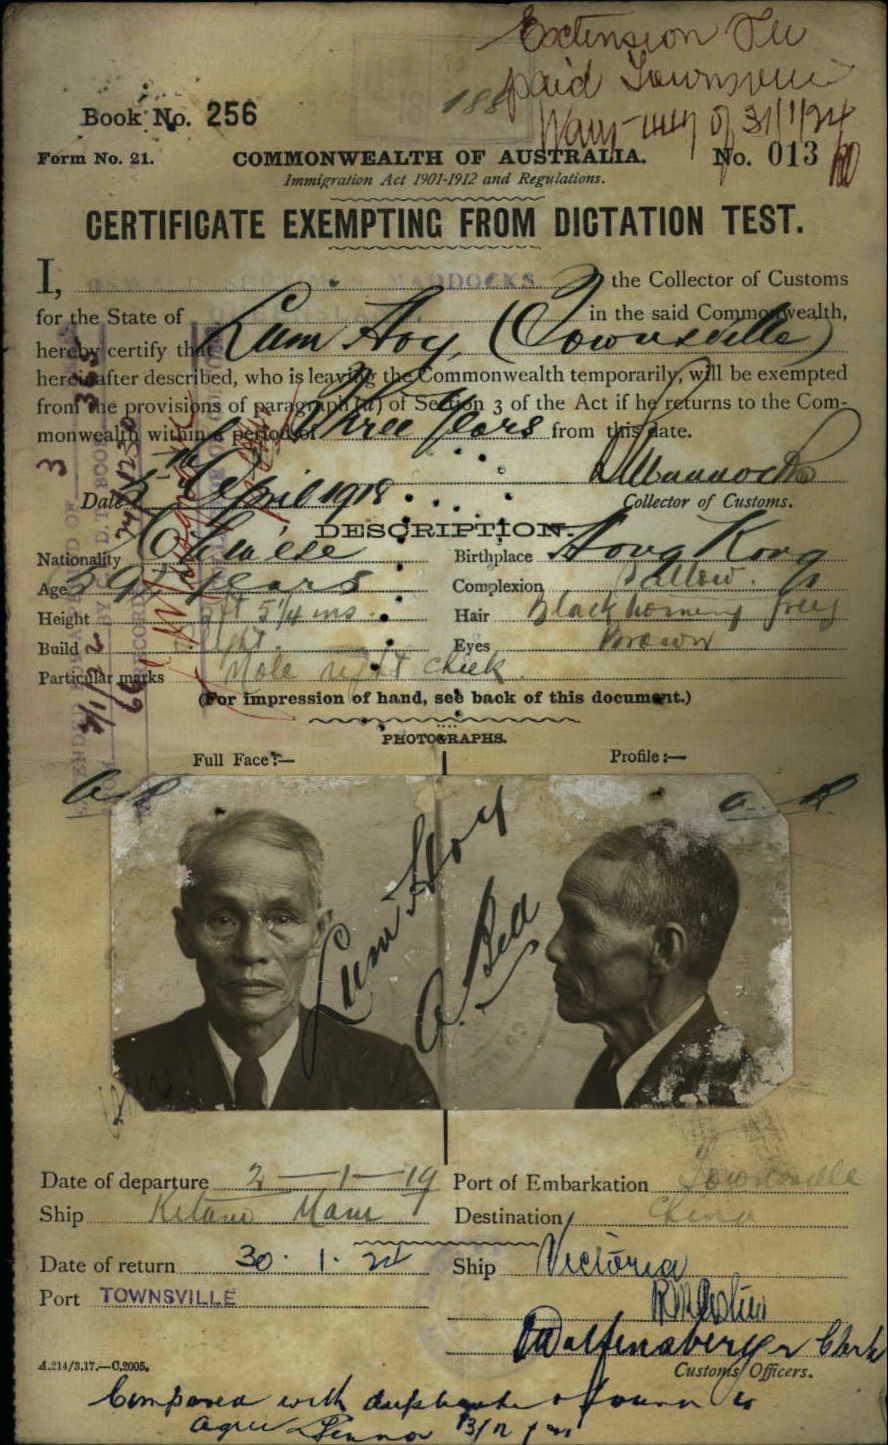 Extension Fee
paid Townsville
of 31/1/24
188
Book No. 256
Form No. 21.
COMMONWEALTH OF AUSTRALIA.
No. 013
Immigration Act 1901-1912 and Regulations.
CERTIFICATE EXEMPTING FROM DICTATION TEST.
I, MADDOCKS the Collector of Customs
for the State of in the said Commonwealth,
hereby certify that Lum Hoy, (Townsville)
hereinafter described, who is leaving the Commonwealth temporarily, will be exempted
from the provisions of paragraph (a) of Section 3 of the Act if he returns to the Com-
monwealth within a period of Three Years from this date.
Date April 1918
Collector of Customs.
DESCRIPTION.
Nationality Chinese
Birthplace Hong Kong
Age 39 years
Complexion Sallow.
Height 5ft 5¼ ins.
Hair Black turning grey
Build Slight.
Eyes Brown
Particular marks Mole right cheek.
(For impression of hand, see back of this document.)
PHOTOGRAPHS.
Full Face:—
Profile:—
Lum Hoy
A. Bell
Date of departure 2-1-19
Port of Embarkation Townsville
Ship Kitano Maru
Destination China
Date of return 30. 1. 24
Ship Victoria
Port TOWNSVILLE
Clerk
Customs Officers.
A.214/3.17.—C.2005.
Compared with duplicate & found to
agree